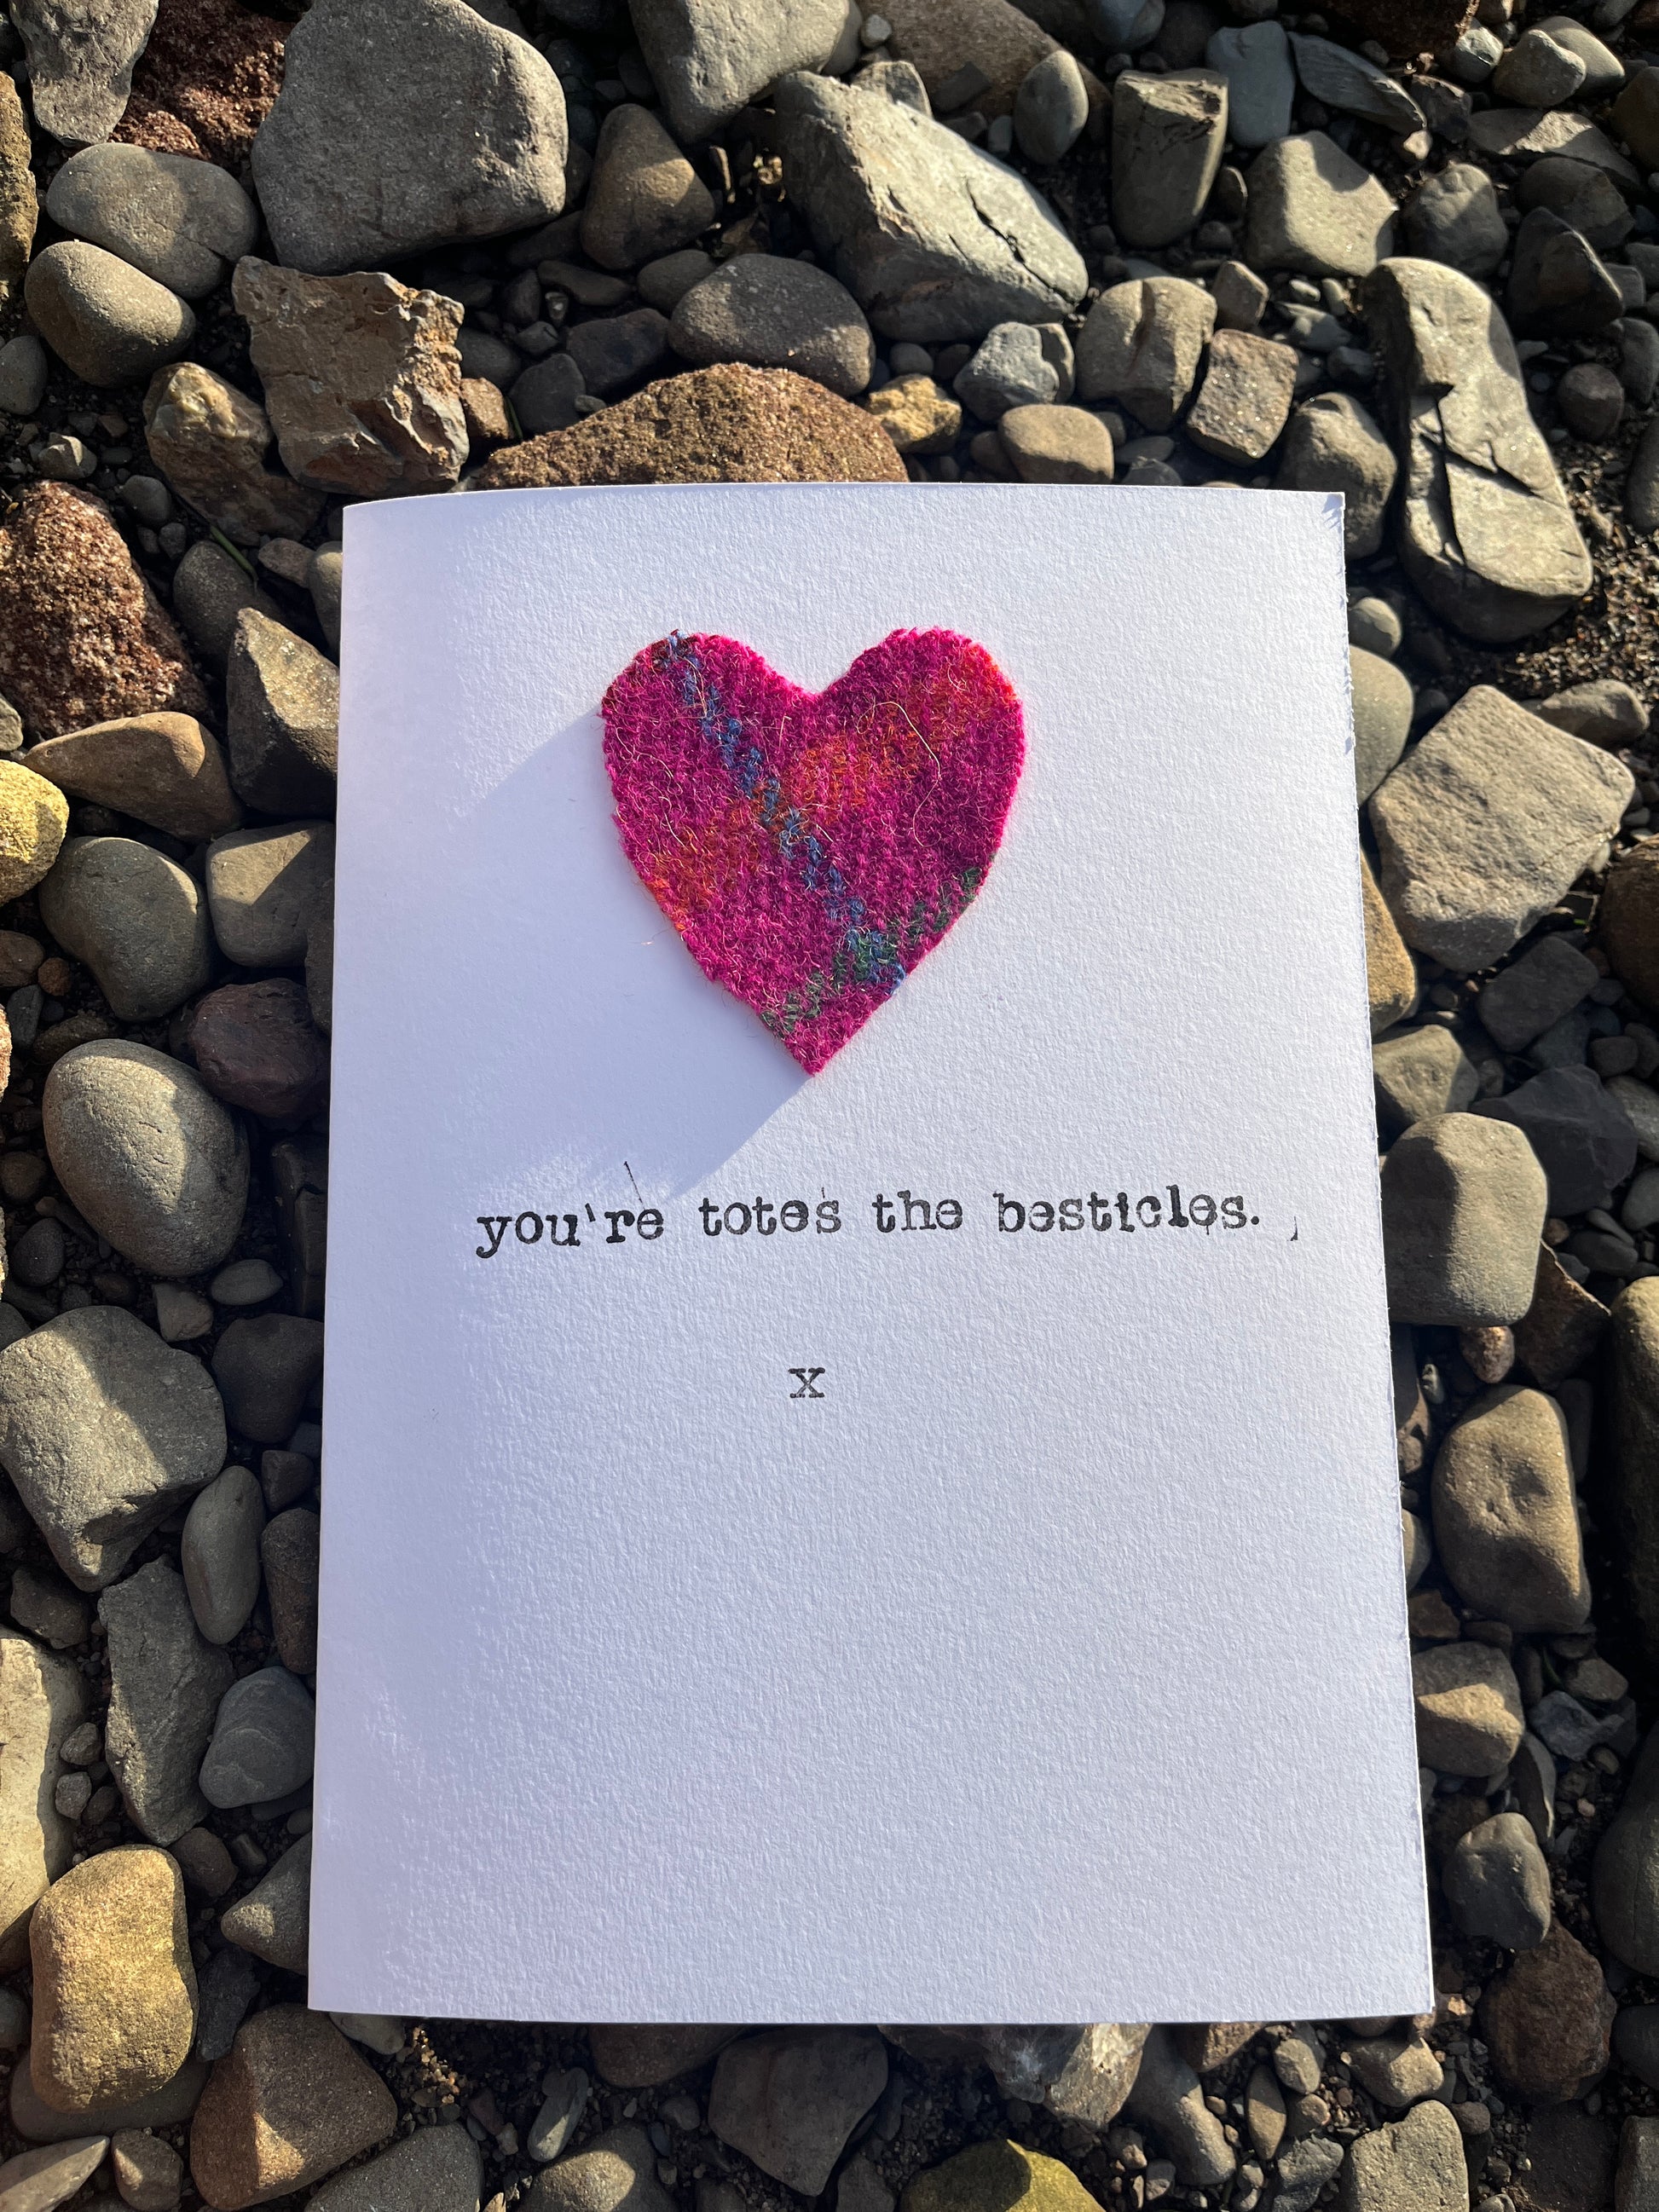 you're totes the besticles.
x